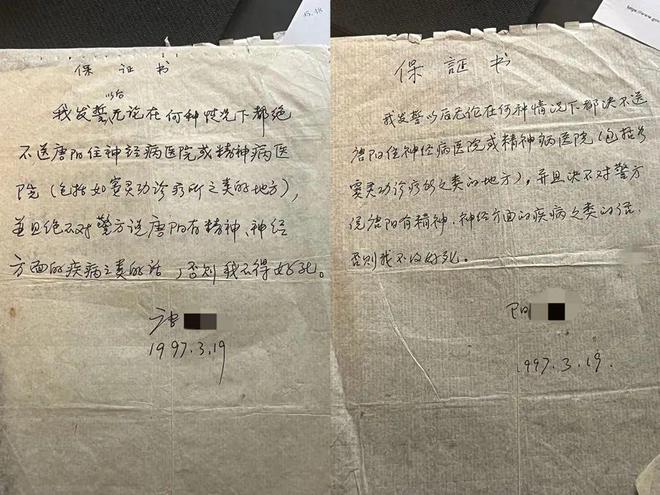 15.18
保证书
以后
我发誓,无论在何种情况下都绝
不送唐阳住神经病医院或精神病医
院(包括如窦灵功诊疗所之类的地方),
并且绝不对警方说唐阳有精神、神经
方面的疾病之类的话,否则我不得好死。
唐
1997.3.19
https://www.go
保証书
我发誓以后无论在何种情况下都决不送
唐阳住神经病医院或精神病医院(包括如
窦灵功诊疗所之类的地方),并且决不对警方
说唐阳有精神、神经方面的疾病之类的话,
否则我不得好死。
阳
1997.3.19.